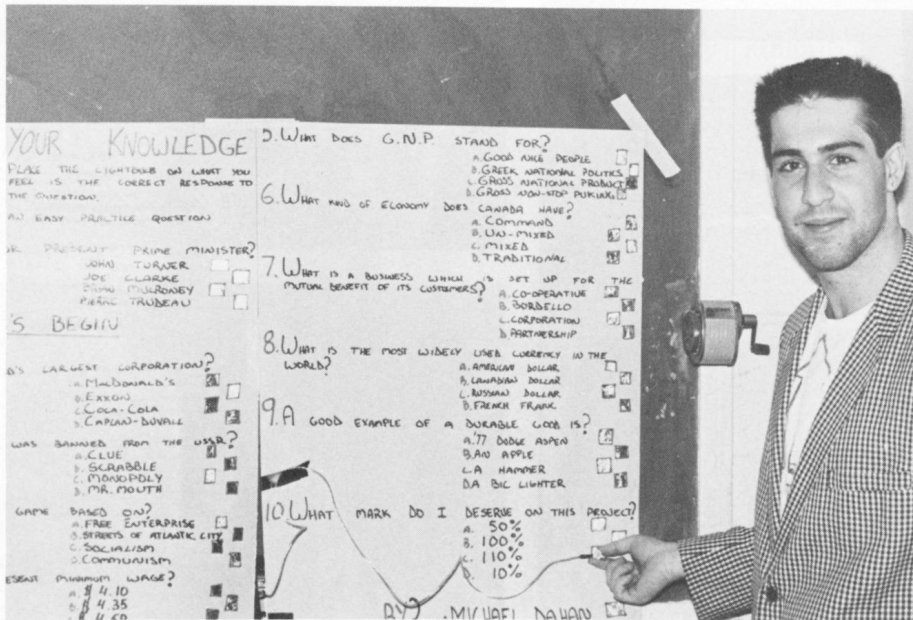 YOUR KNOWLEDGE
PLACE THE LIGHTBULB ON WHAT YOU
FEEL IS THE CORRECT RESPONSE TO
THE QUESTION.
AN EASY PRACTICE QUESTION
PRESENT PRIME MINISTER?
JOHN TURNER
JOE CLARKE
BRIAN MULRONEY
PIERRE TRUDEAU
'S BEGIN
D'S LARGEST CORPORATION?
A. MACDONALD'S
B. EXXON
C. COLA-COLA
D. CAPLAN-DUVALL
WAS BANNED FROM THE USSR?
A. CLUE
B. SCRABBLE
C. MONOPOLY
D. MR. MOUTH
GAME BASED ON?
A. FREE ENTERPRISE
B. STREETS OF ATLANTIC CITY
C. SOCIALISM
D. COMMUNISM
ESENT MINIMUM WAGE?
A. $ 4.10
B. $ 4.35
5. WHAT DOES G.N.P. STAND FOR?
A. GOOD NICE PEOPLE
B. GREEK NATIONAL POLITICS
C. GROSS NATIONAL PRODUCT
D. GROSS NON-STOP PUKING
6. WHAT KIND OF ECONOMY DOES CANADA HAVE?
A. COMMAND
B. UN-MIXED
C. MIXED
D. TRADITIONAL
7. WHAT IS A BUSINESS WHICH IS SET UP FOR THE
MUTUAL BENEFIT OF ITS CUSTOMERS?
A. CO-OPERATIVE
B. BORDELLO
C. CORPORATION
D. PARTNERSHIP
8. WHAT IS THE MOST WIDELY USED CURRENCY IN THE
WORLD?
A. AMERICAN DOLLAR
B. CANADIAN DOLLAR
C. RUSSIAN DOLLAR
D. FRENCH FRANK
9. A GOOD EXAMPLE OF A DURABLE GOOD IS?
A. '77 DODGE ASPEN
B. AN APPLE
C. A HAMMER
D. A BIC LIGHTER
10. WHAT MARK DO I DESERVE ON THIS PROJECT?
A. 50%
B. 100%
C. 110%
D. 10%
BY: MICHAEL DAHAN